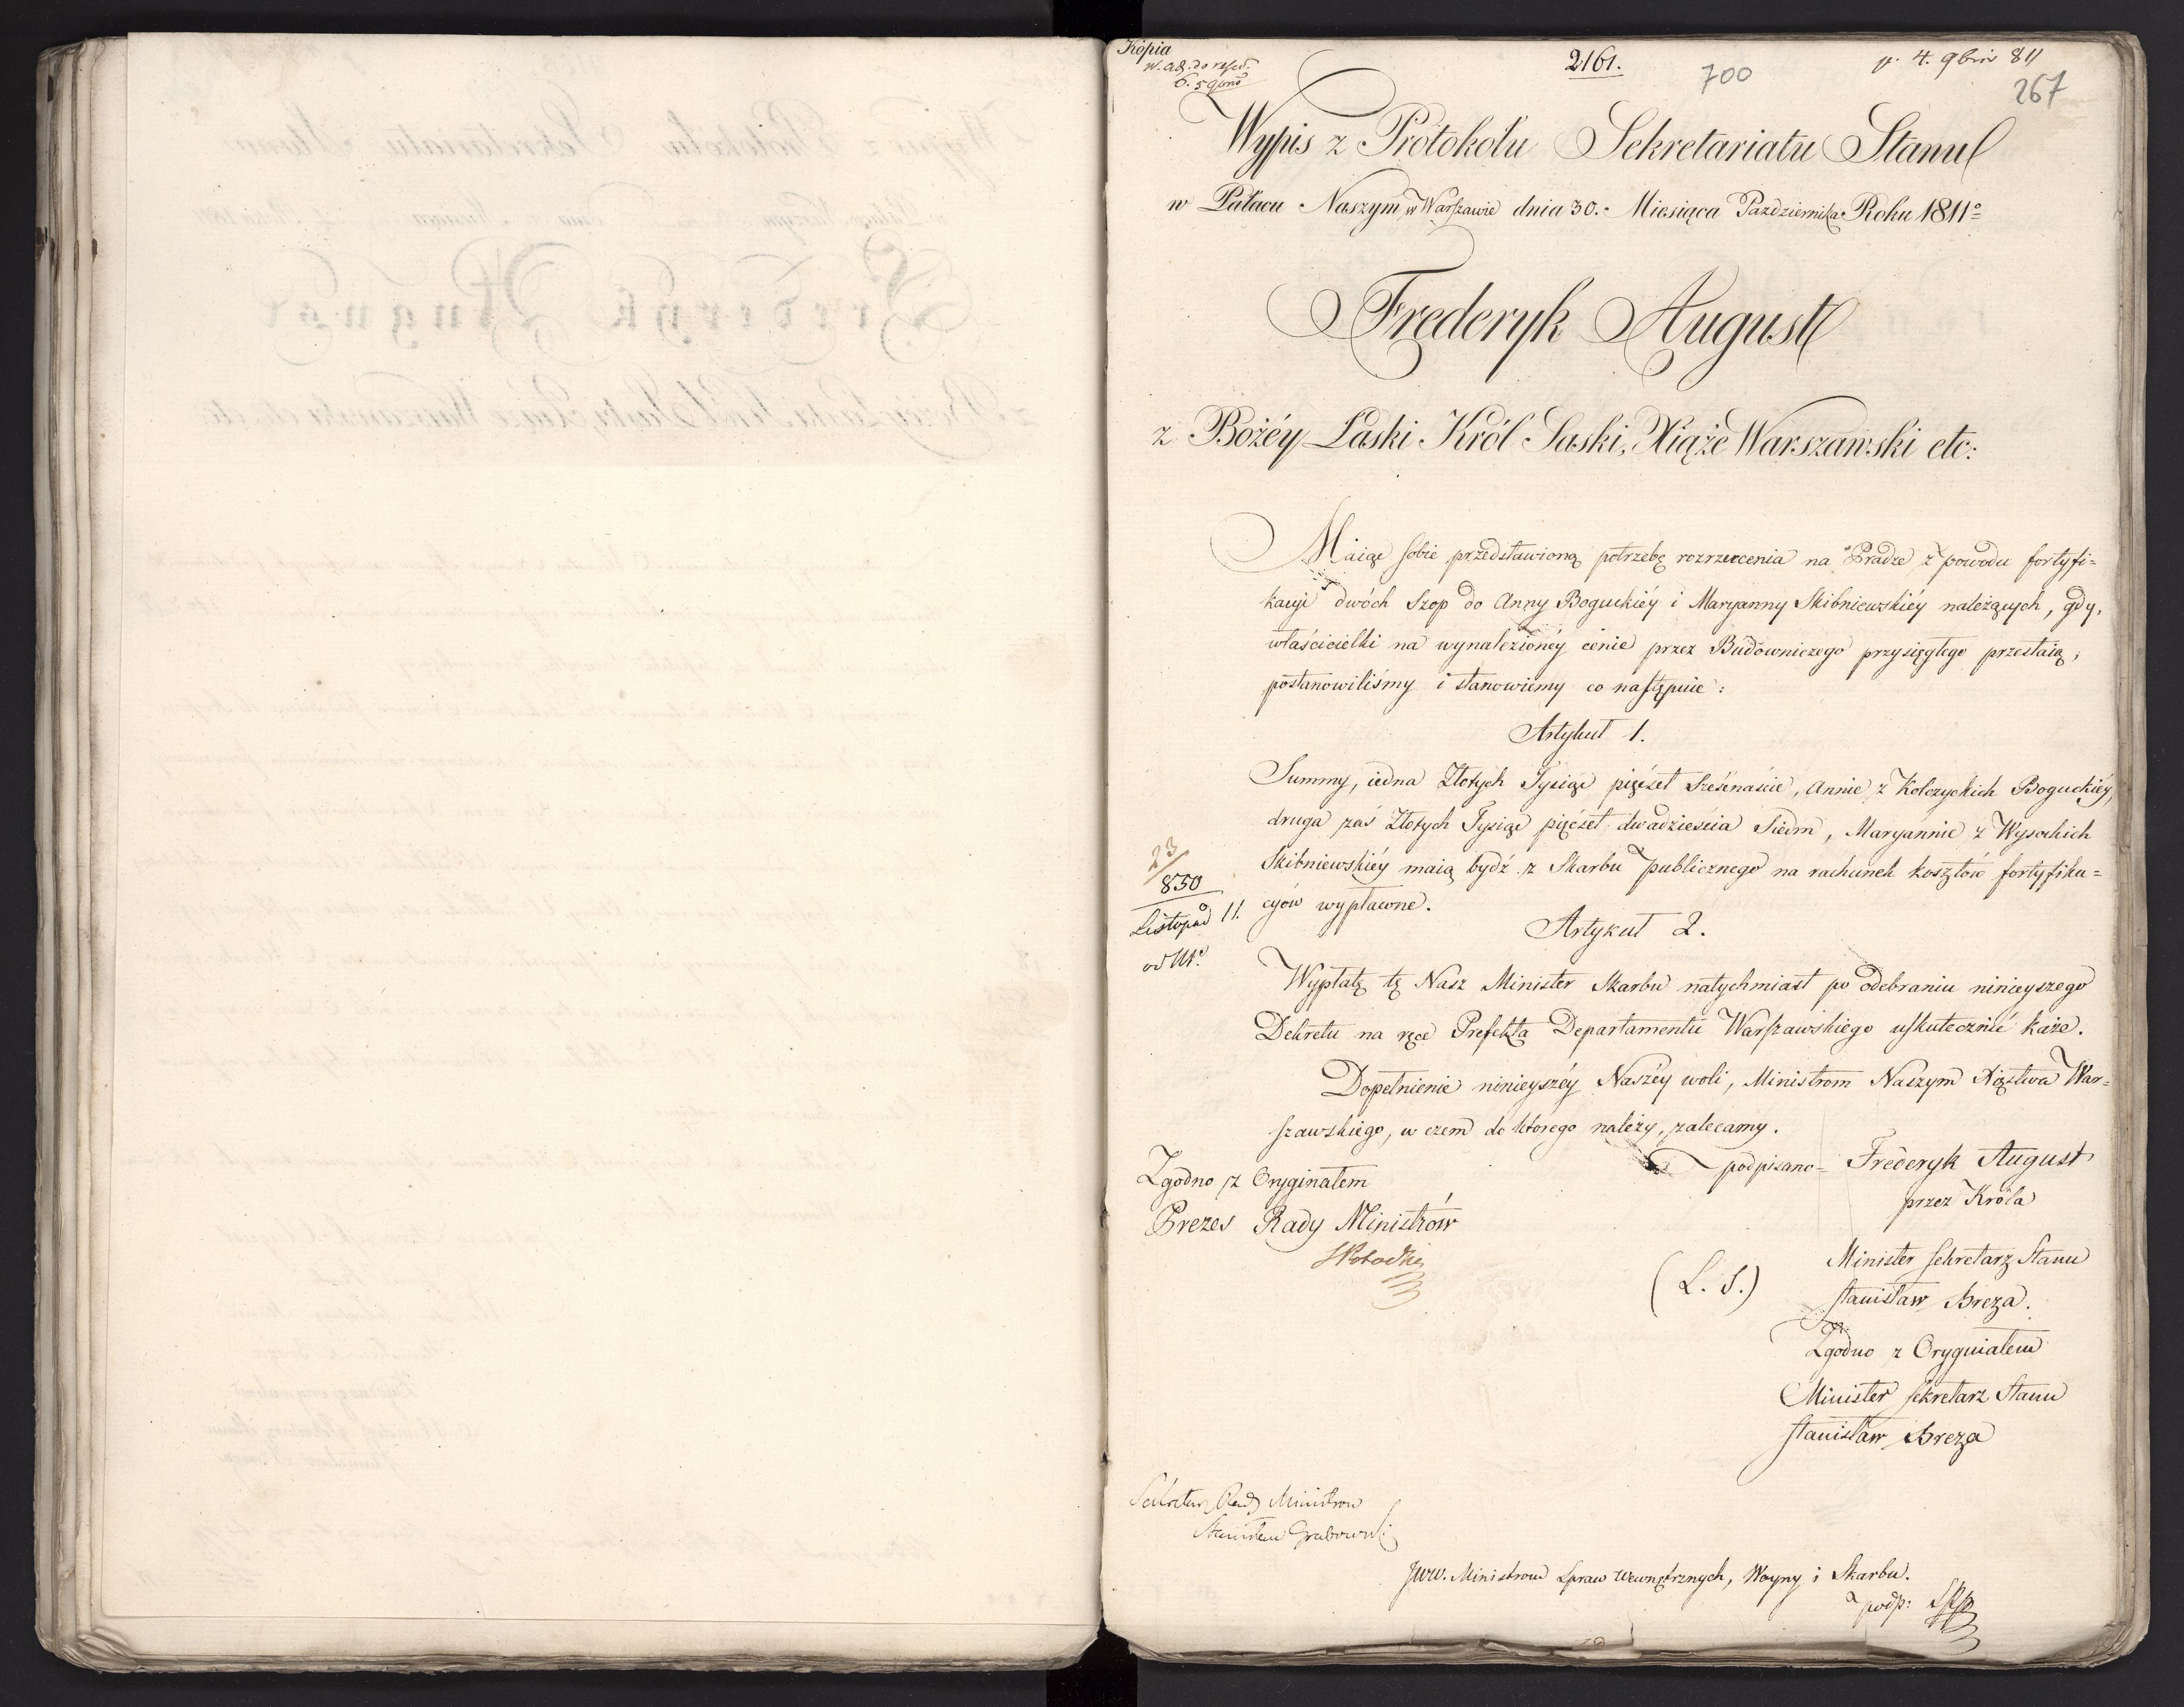 Kopia
2161.
700
267
Wypis z Protokołu Sekretariatu Stanu
w Pałacu Naszym w Warszawie dnia 30. Miesiąca Pazdziernika Roku 1811º
Frederyk August
z Bożéy Łaski Król Saski, Xiąże Warszawski etc:
Maiąc sobie przedstawioną potrzebę rozrzucenia na Pradze z powodu fortyfi=
kacyi dwóch Szop do Anny Boguckiéy i Maryanny Skibniewskiéy należących, gdy,
właścicielki na wynalezionéy cenie przez Budowniczego przysięgłego przestaią,
postanowiliśmy i stanowiemy co następuie:
Artykuł 1.
Summy, iedna Złotych Tysiąc pięćset Sześnaście, Annie z Kolczyckich Boguckiéy,
druga zaś Złotych Tysiąc pięćset dwadzieścia Siedm, Maryannie z Wysockich
Skibniewskiéy maią bydź z Skarbu publicznego na rachunek kosztów fortyfika=
cyów wypłacone.
23
850
Listopad 11.
Artykuł 2.
Wypłatę tę Nasz Minister Skarbu natychmiast po odebraniu ninieyszego
Dekretu na ręce Prefekta Departamentu Warszawskiego uskutecznić każe.
Dopełnienie ninieyszéy Naszéy woli, Ministrom Naszym Xięstwa War=
szawskiego, w czem do którego należy, zalecamy.
podpisano= Frederyk August
przez Króla
Zgodno z Oryginałem
Prezes Rady Ministrów
(L. S.)
Minister Sekretarz Stanu
Stanisław Breza.
Zgodno z Oryginałem
Minister Sekretarz Stanu
Stanisław Breza
Sekretarz Rady Ministrów
Stanisław Grabowski
JWW. Ministrom Spraw Wewnętrznych, Woyny i Skarbu.
podp: